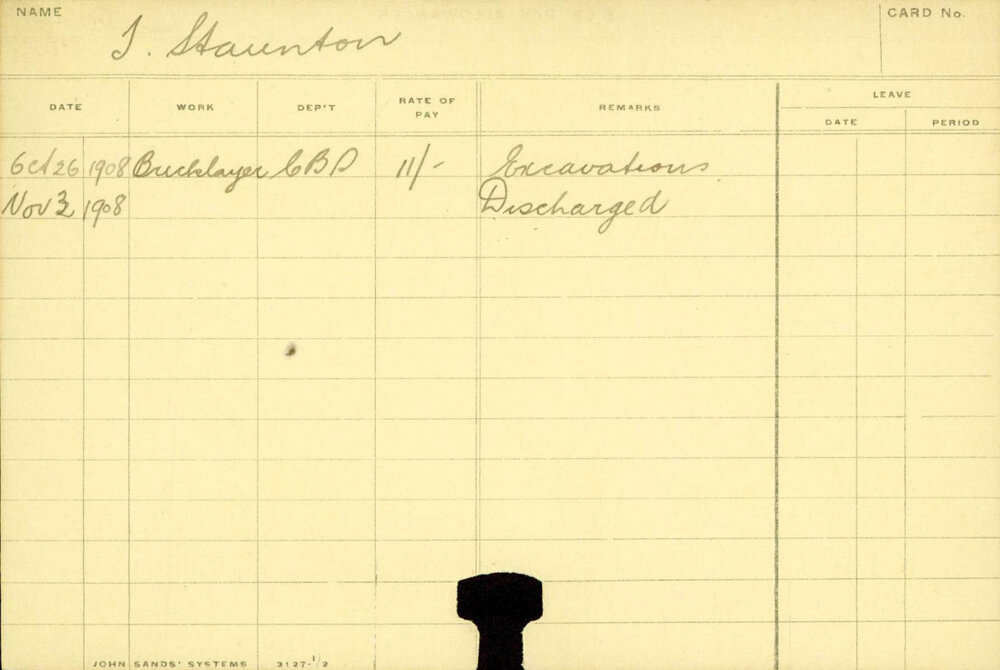 NAME
CARD No.
J. Staunton
DATE WORK DEP'T RATE OF PAY REMARKS LEAVE
DATE PERIOD
Oct 26 1908 Bricklayer CBD 11/- Excavations
Nov 1908 Discharged
JOHN SANDS' SYSTEMS 3127-1/2